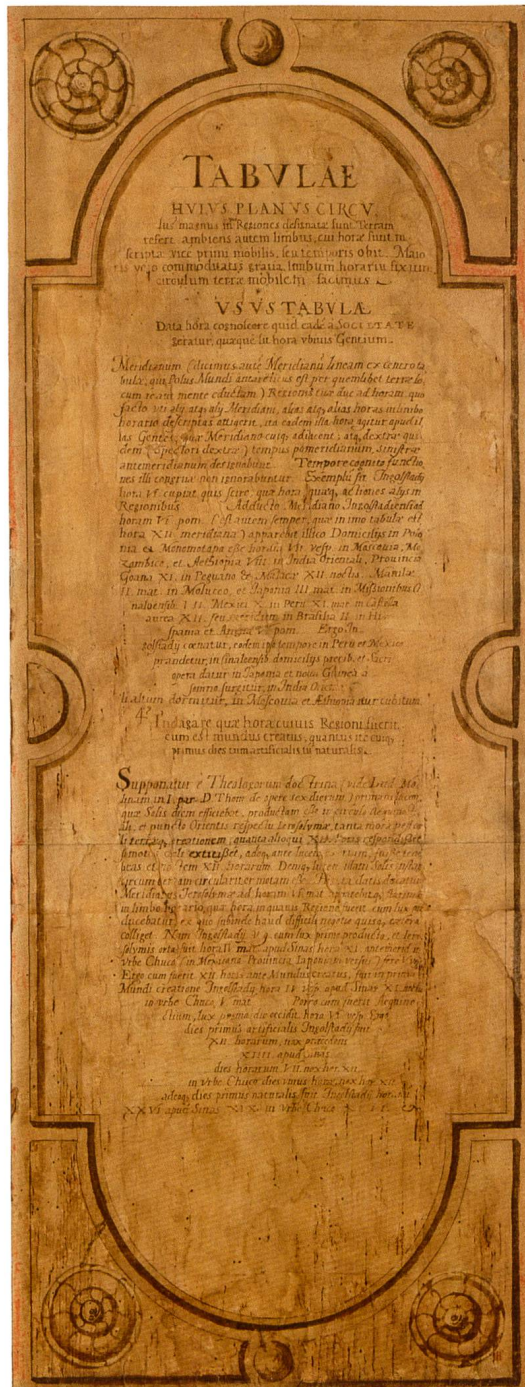 TABVLAE
HVIVS PLANVS CIRCV,
lus magnus in Regiones destinatas suas Terram
refert, ambiens autem limbus, cui horæ sunt in
scriptæ vice primi mobilis, seu temporis obit. Maio
ris vero commoditatis gratia, limbum horariū fixum
circulum terræ mobilem facimus
VSVS TABVLÆ
Data hora cognoscere quid eadē à SOCIETATE
geratur, quæque sit hora ubiuis Gentium
Meridianum (dicimus autē Meridianū lineam ex centro ta
bulæ, qui Polus Mundi antarcticus est per quemlibet terræ lo,
cum recta mente eductam) Regionis tuæ duc ad horam, quo
facto uti alij atq; alij Meridiani, alias atq; alias horas in limbo
horario descriptas attigerit, ita eadem illa hora agitur apud il
las Gentes, quæ Meridiano cuiq; adiacent, atq; dextræ qui
dem (spectori dextræ) tempus pomeridianum, sinistræ
antemeridianum designabunt. Tempore cognito functio,
nes illi congruæ non ignorabuntur. Exemplū sit, Ingolstadij
hora VI cupiat quis scire, quæ hora, quæq; actiones alijs in
Regionibus Adducto Meridiano Ingolstadiensi ad
horam VI pom. (est autem semper, quæ in imo tabulæ est
hora XII meridiana) apparebit illico Domicilijs in Polo
nia et Monomotapa esse horam VII vesp. in Moscouia, Mo
zambice, et Aethiopia VIII, in India Orientali, Prouincia
Goana XI, in Peguano & Malaca XII noctis. Manilæ
II mat. in Molucco, et Iaponia III mat. in Missionibus Ci
naloensib. III Mexici X in Perù XI mat. in Castella
aurea XII, seu meridiem in Brasilia II in His
pania et Anglia V pom. Ergo In,
golstadij cœnatur, eodem ipso tempore in Perù et Mexico
prandetur, in sinaloensib. domicilijs precib. et Sacri
opera datur in Iaponia et noua Guinea à
somno surgitur, in India Orien
talium dormitur, in Moscouia et Æthiopia itur cubitum
Indagare quæ hora cuiuis Regioni fuerit,
cum est mundus creatus, quantus itē cuiq;
primus dies tum artificialis tū naturalis
Supponatur è Theologorum doctrina, vide Lud. Mo,
linam in I. par. D. Thom. de opere sex dierum) primam lucem
quæ Solis diem efficiebat, productam esse in circulo Æquinocti
ali, et puncto Orientis respectu Ierosolymæ, tanta mora
creationem, quanta alioqui XII horas
Sole extitisset, adeoq; ante lucem
XII horarum. Deniq; lucem
circum terram circulariter motam esse
Meridianus Ierosolymæ ad horam VI mat.
in limbo horario, quæ hora, in quauis Regione fuerit cum lux
dicebatur, ex quo subinde haud difficili negotio quiuis, cœtera
colliget. Nam Ingolstadij v.g. cum lux primo producta, et Iero
solymis orta, fuit hora II mat. apud Sinas hora XI antemerid. in
Vrbe Chuco (in Mexicana Prouincia, Iaponiam versus) fere
Ergo cum fuerit XII horis ante Mundus creatus, fuit in prima
Mundi creatione Ingolstadij hora II vesp. apud Sinas XI noctis
in vrbe Chuco V mat. Porro cum fuerit Æquino,
ctium, lux prima, die occidit hora VI vesp. Ergo
dies primus artificialis Ingolstadij fuit
XII horarum, nox præcedens
XIIII apud Sinas
dies horarum VII nox hor. XII
in Vrbe Chuco dies vnius horæ, nox hor. XII
adeoq; dies primus naturalis fuit Ingolstadij horarum
XXVI apud Sinas XIX in Vrbe Chuco